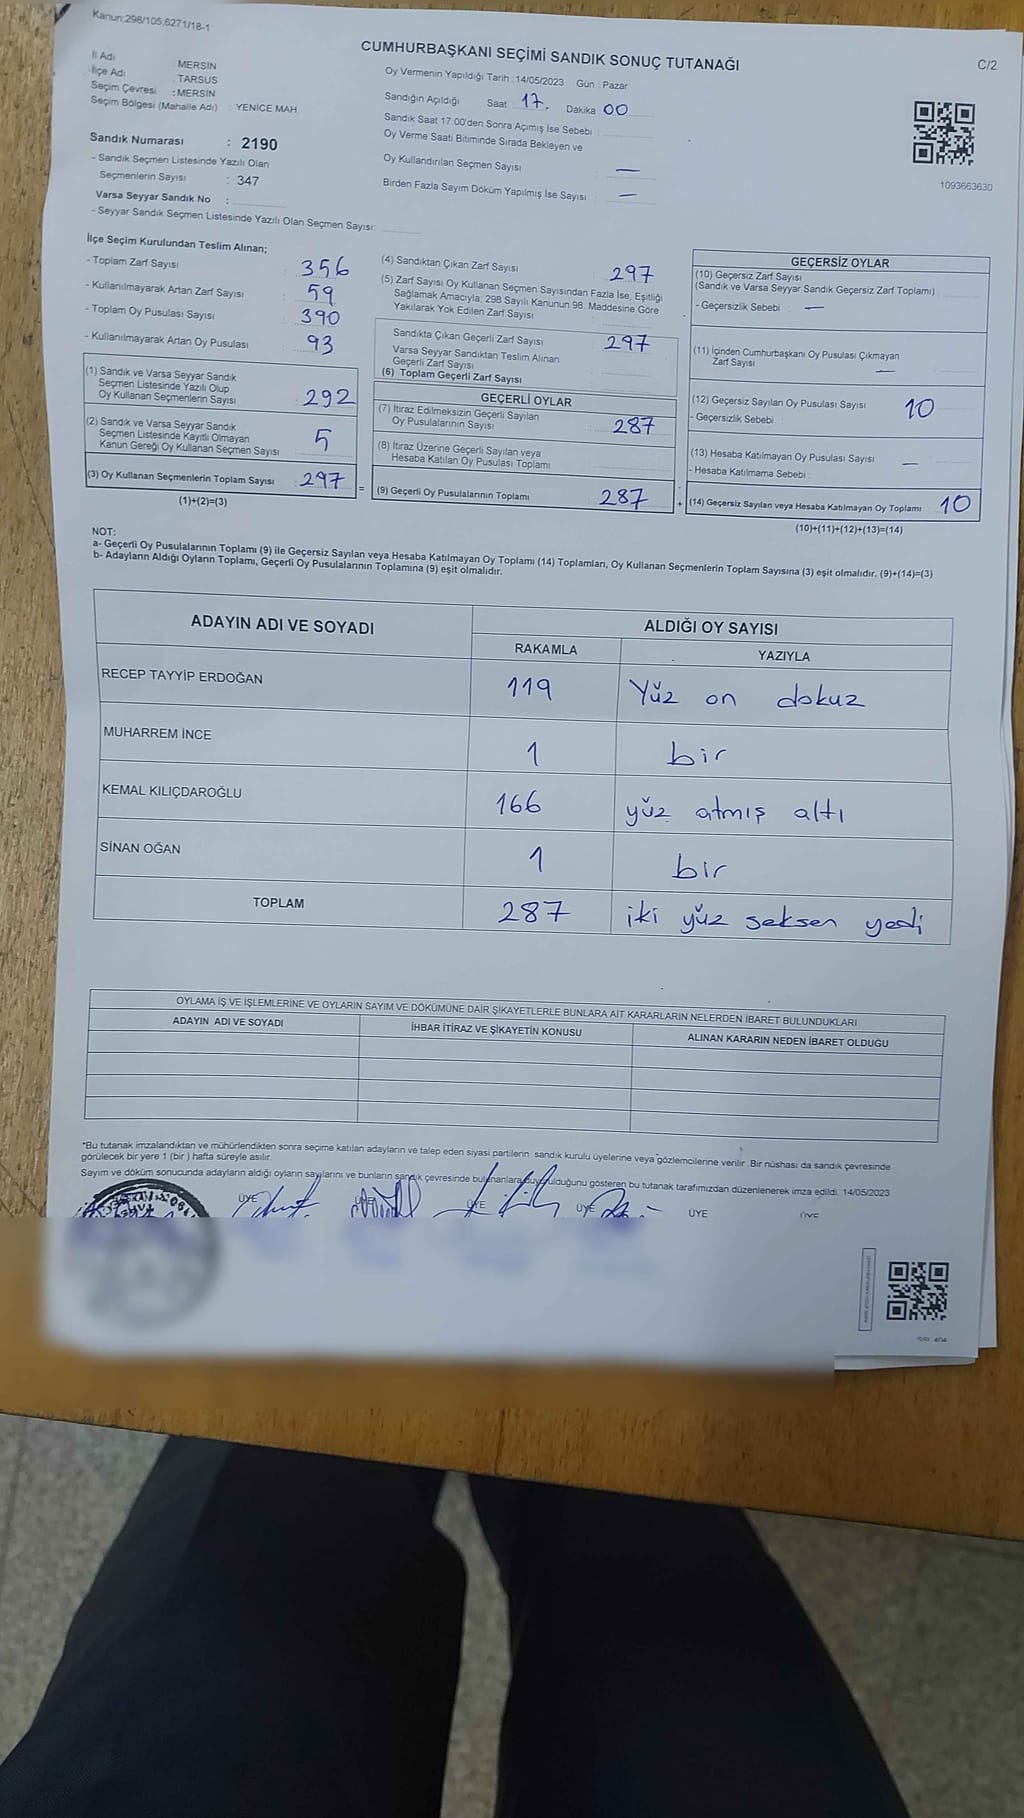 Kanun;298/105;6271/18-1
CUMHURBAŞKANI SEÇİMİ SANDIK SONUÇ TUTANAĞI
C/2
İl Adı : MERSİN
İlçe Adı : TARSUS
Seçim Çevresi : MERSİN
Seçim Bölgesi (Mahalle Adı) : YENİCE MAH.
Oy Vermenin Yapıldığı Tarih : 14/05/2023 Gün : Pazar
Sandığın Açıldığı Saat 17. Dakika : 00
Sandık Saat 17:00'den Sonra Açımış İse Sebebi :
Oy Verme Saati Bitiminde Sırada Bekleyen ve
Oy Kullandırılan Seçmen Sayısı : —
Birden Fazla Sayım Döküm Yapılmış İse Sayısı : —
1093663630
Sandık Numarası : 2190
- Sandık Seçmen Listesinde Yazılı Olan
Seçmenlerin Sayısı : 347
Varsa Seyyar Sandık No :
- Seyyar Sandık Seçmen Listesinde Yazılı Olan Seçmen Sayısı:
İlçe Seçim Kurulundan Teslim Alınan;
- Toplam Zarf Sayısı : 356
- Kullanılmayarak Artan Zarf Sayısı : 59
- Toplam Oy Pusulası Sayısı : 390
- Kullanılmayarak Artan Oy Pusulası : 93
(1) Sandık ve Varsa Seyyar Sandık
Seçmen Listesinde Yazılı Olup
Oy Kullanan Seçmenlerin Sayısı : 292
(2) Sandık ve Varsa Seyyar Sandık
Seçmen Listesinde Kayıtlı Olmayan
Kanun Gereği Oy Kullanan Seçmen Sayısı : 5
(3) Oy Kullanan Seçmenlerin Toplam Sayısı : 297
(1)+(2)=(3)
=
(4) Sandıktan Çıkan Zarf Sayısı : 297
(5) Zarf Sayısı Oy Kullanan Seçmen Sayısından Fazla İse, Eşitliği
Sağlamak Amacıyla; 298 Sayılı Kanunun 98. Maddesine Göre
Yakılarak Yok Edilen Zarf Sayısı :
Sandıkta Çıkan Geçerli Zarf Sayısı : 297
Varsa Seyyar Sandıktan Teslim Alınan
Geçerli Zarf Sayısı :
(6) Toplam Geçerli Zarf Sayısı :
GEÇERLİ OYLAR
(7) İtiraz Edilmeksizin Geçerli Sayılan
Oy Pusulalarının Sayısı : 287
(8) İtiraz Üzerine Geçerli Sayılan veya
Hesaba Katılan Oy Pusulası Toplamı
(9) Geçerli Oy Pusulalarının Toplamı : 287
+
GEÇERSİZ OYLAR
(10) Geçersiz Zarf Sayısı
(Sandık ve Varsa Seyyar Sandık Geçersiz Zarf Toplamı) :
- Geçersizlik Sebebi : —
(11) İçinden Cumhurbaşkanı Oy Pusulası Çıkmayan
Zarf Sayısı : —
(12) Geçersiz Sayılan Oy Pusulası Sayısı : 10
- Geçersizlik Sebebi :
(13) Hesaba Katılmayan Oy Pusulası Sayısı : —
- Hesaba Katılmama Sebebi :
(14) Geçersiz Sayılan veya Hesaba Katılmayan Oy Toplamı 10
(10)+(11)+(12)+(13)=(14)
NOT:
a- Geçerli Oy Pusulalarının Toplamı (9) ile Geçersiz Sayılan veya Hesaba Katılmayan Oy Toplamı (14) Toplamları, Oy Kullanan Seçmenlerin Toplam Sayısına (3) eşit olmalıdır. (9)+(14)=(3)
b- Adayların Aldığı Oyların Toplamı, Geçerli Oy Pusulalarının Toplamına (9) eşit olmalıdır.
ADAYIN ADI VE SOYADI ALDIĞI OY SAYISI
RAKAMLA YAZIYLA
RECEP TAYYİP ERDOĞAN 119 Yüz on dokuz
MUHARREM İNCE 1 bir
KEMAL KILIÇDAROĞLU 166 yüz atmış altı
SİNAN OĞAN 1 bir
TOPLAM 287 iki yüz seksen yedi
OYLAMA İŞ VE İŞLEMLERİNE VE OYLARIN SAYIM VE DÖKÜMÜNE DAİR ŞİKAYETLERLE BUNLARA AİT KARARLARIN NELERDEN İBARET BULUNDUKLARI
ADAYIN ADI VE SOYADI İHBAR İTİRAZ VE ŞİKAYETİN KONUSU ALINAN KARARIN NEDEN İBARET OLDUĞU
*Bu tutanak imzalandıktan ve mühürlendikten sonra seçime katılan adayların ve talep eden siyasi partilerin sandık kurulu üyelerine veya gözlemcilerine verilir. Bir nüshası da sandık çevresinde
görülecek bir yere 1 (bir) hafta süreyle asılır.
Sayım ve döküm sonucunda adayların aldığı oyların sayılarını ve bunların sandık çevresinde bulunanlara duyurulduğunu gösteren bu tutanak tarafımızdan düzenlenerek imza edildi. 14/05/2023
ÜYE ÜYE ÜYE ÜYE ÜYE ÜYE